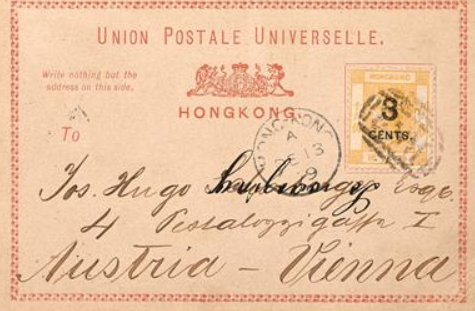 UNION POSTALE UNIVERSELLE.
Write nothing but the
address on this side.
HONGKONG.
HONGKONG
3
CENTS.
HONG KONG
A
13
To
Jos. Hugo Esqre.
4 Pestalozzigasse I
Austria – Vienna